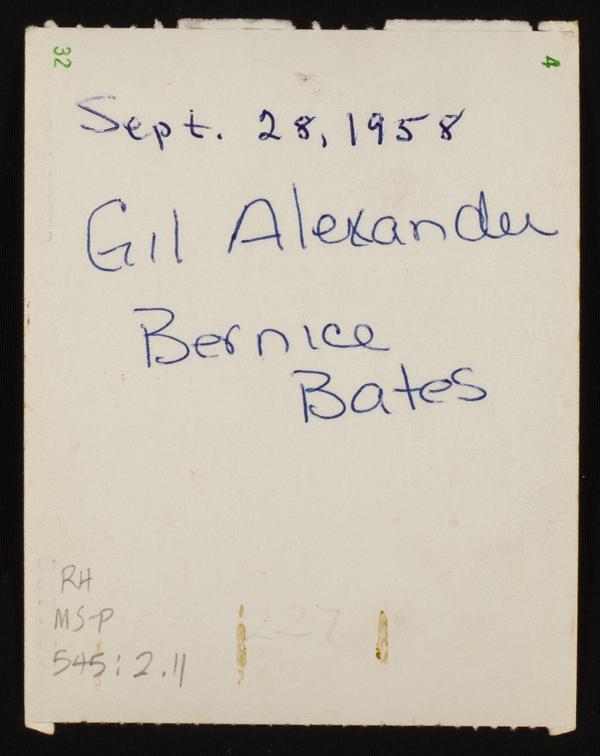 32
4
Sept. 28, 1958
Gil Alexander
Bernice
Bates
RH
MS-P
545:2.11
227